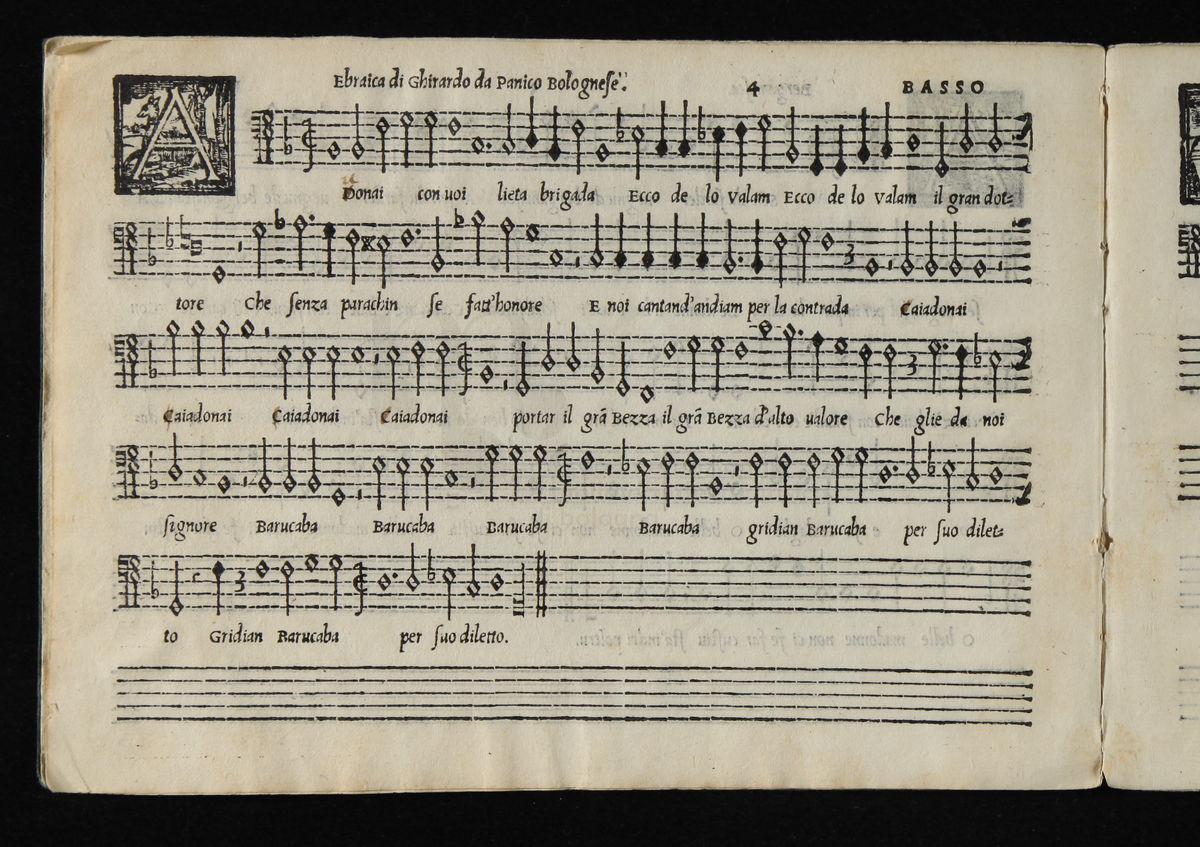 Ebraica di Ghirardo da Panico Bolognese. 4 BASSO
A Donai con uoi lieta brigada Ecco de lo Valam Ecco de lo Valam il gran dot=
tore Che senza parachin se fatt'honore E noi cantand'andiam per la contrada Caiadonai
Caiadonai Caiadonai Caiadonai portar il grā Bezza il grā Bezza d'alto ualore Che glie da noi
signore Barucaba Barucaba Barucaba Barucaba gridian Barucaba per suo dilet=
to Gridian Barucaba per suo diletto.